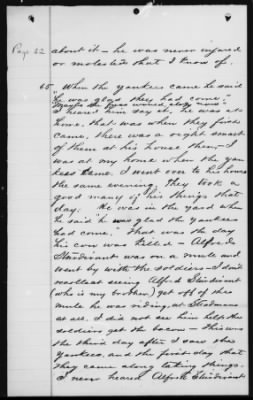 Page 22
about it – he was never injured
or molested that I know of.
65 "When the yankees came he said
he was glad they had come."
I heard him say it, he was at
home, that was when they first
came, there was a right smart
of them at his house then – I
was at my home when the yan
kees came. I went over to his house
the same evening. They took a
good many of his things that
day. He was in the yard when
he said "he was glad the yankees
had come." That was the day
his cow was killed – Alfred
Sturdivant was on a mule and
went by with the soldiers – I don't
recollect seeing Alfred Sturdivant
(who is my brother) get off of the
mule he was riding, at
at all. I did not see him help the
soldiers get the bacon – This was
the third day after I saw the
Yankees, and the first day that
they came along taking things.
I never heard Alfred Sturdivant